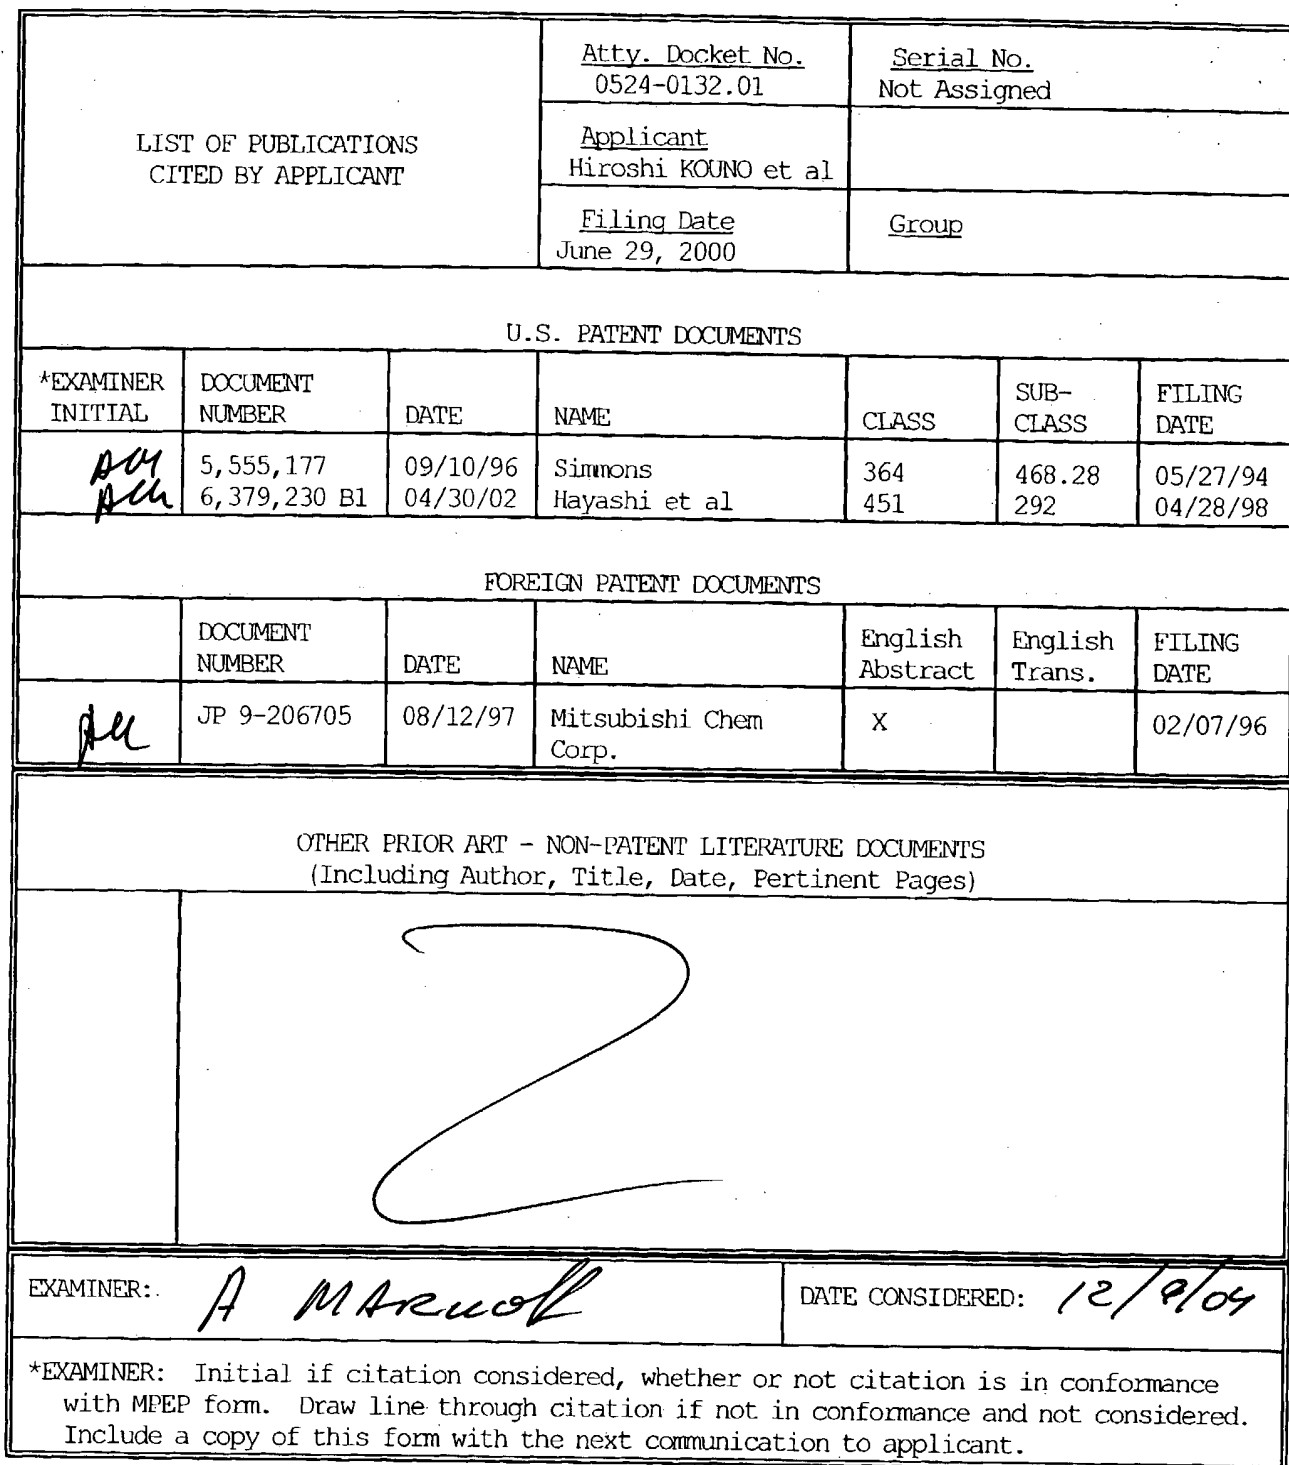 LIST OF PUBLICATIONS
CITED BY APPLICANT
Atty. Docket No.
0524-0132.01
Serial No.
Not Assigned
Applicant
Hiroshi KOUNO et al
Filing Date
June 29, 2000
Group
U.S. PATENT DOCUMENTS
*EXAMINER INITIAL DOCUMENT NUMBER DATE NAME CLASS SUB-CLASS FILING DATE
5,555,177 09/10/96 Simmons 364 468.28 05/27/94
6,379,230 B1 04/30/02 Hayashi et al 451 292 04/28/98
FOREIGN PATENT DOCUMENTS
DOCUMENT NUMBER DATE NAME English Abstract English Trans. FILING DATE
JP 9-206705 08/12/97 Mitsubishi Chem Corp. X 02/07/96
OTHER PRIOR ART - NON-PATENT LITERATURE DOCUMENTS
(Including Author, Title, Date, Pertinent Pages)
EXAMINER: A
DATE CONSIDERED: 12/9/04
*EXAMINER: Initial if citation considered, whether or not citation is in conformance
with MPEP form. Draw line through citation if not in conformance and not considered.
Include a copy of this form with the next communication to applicant.